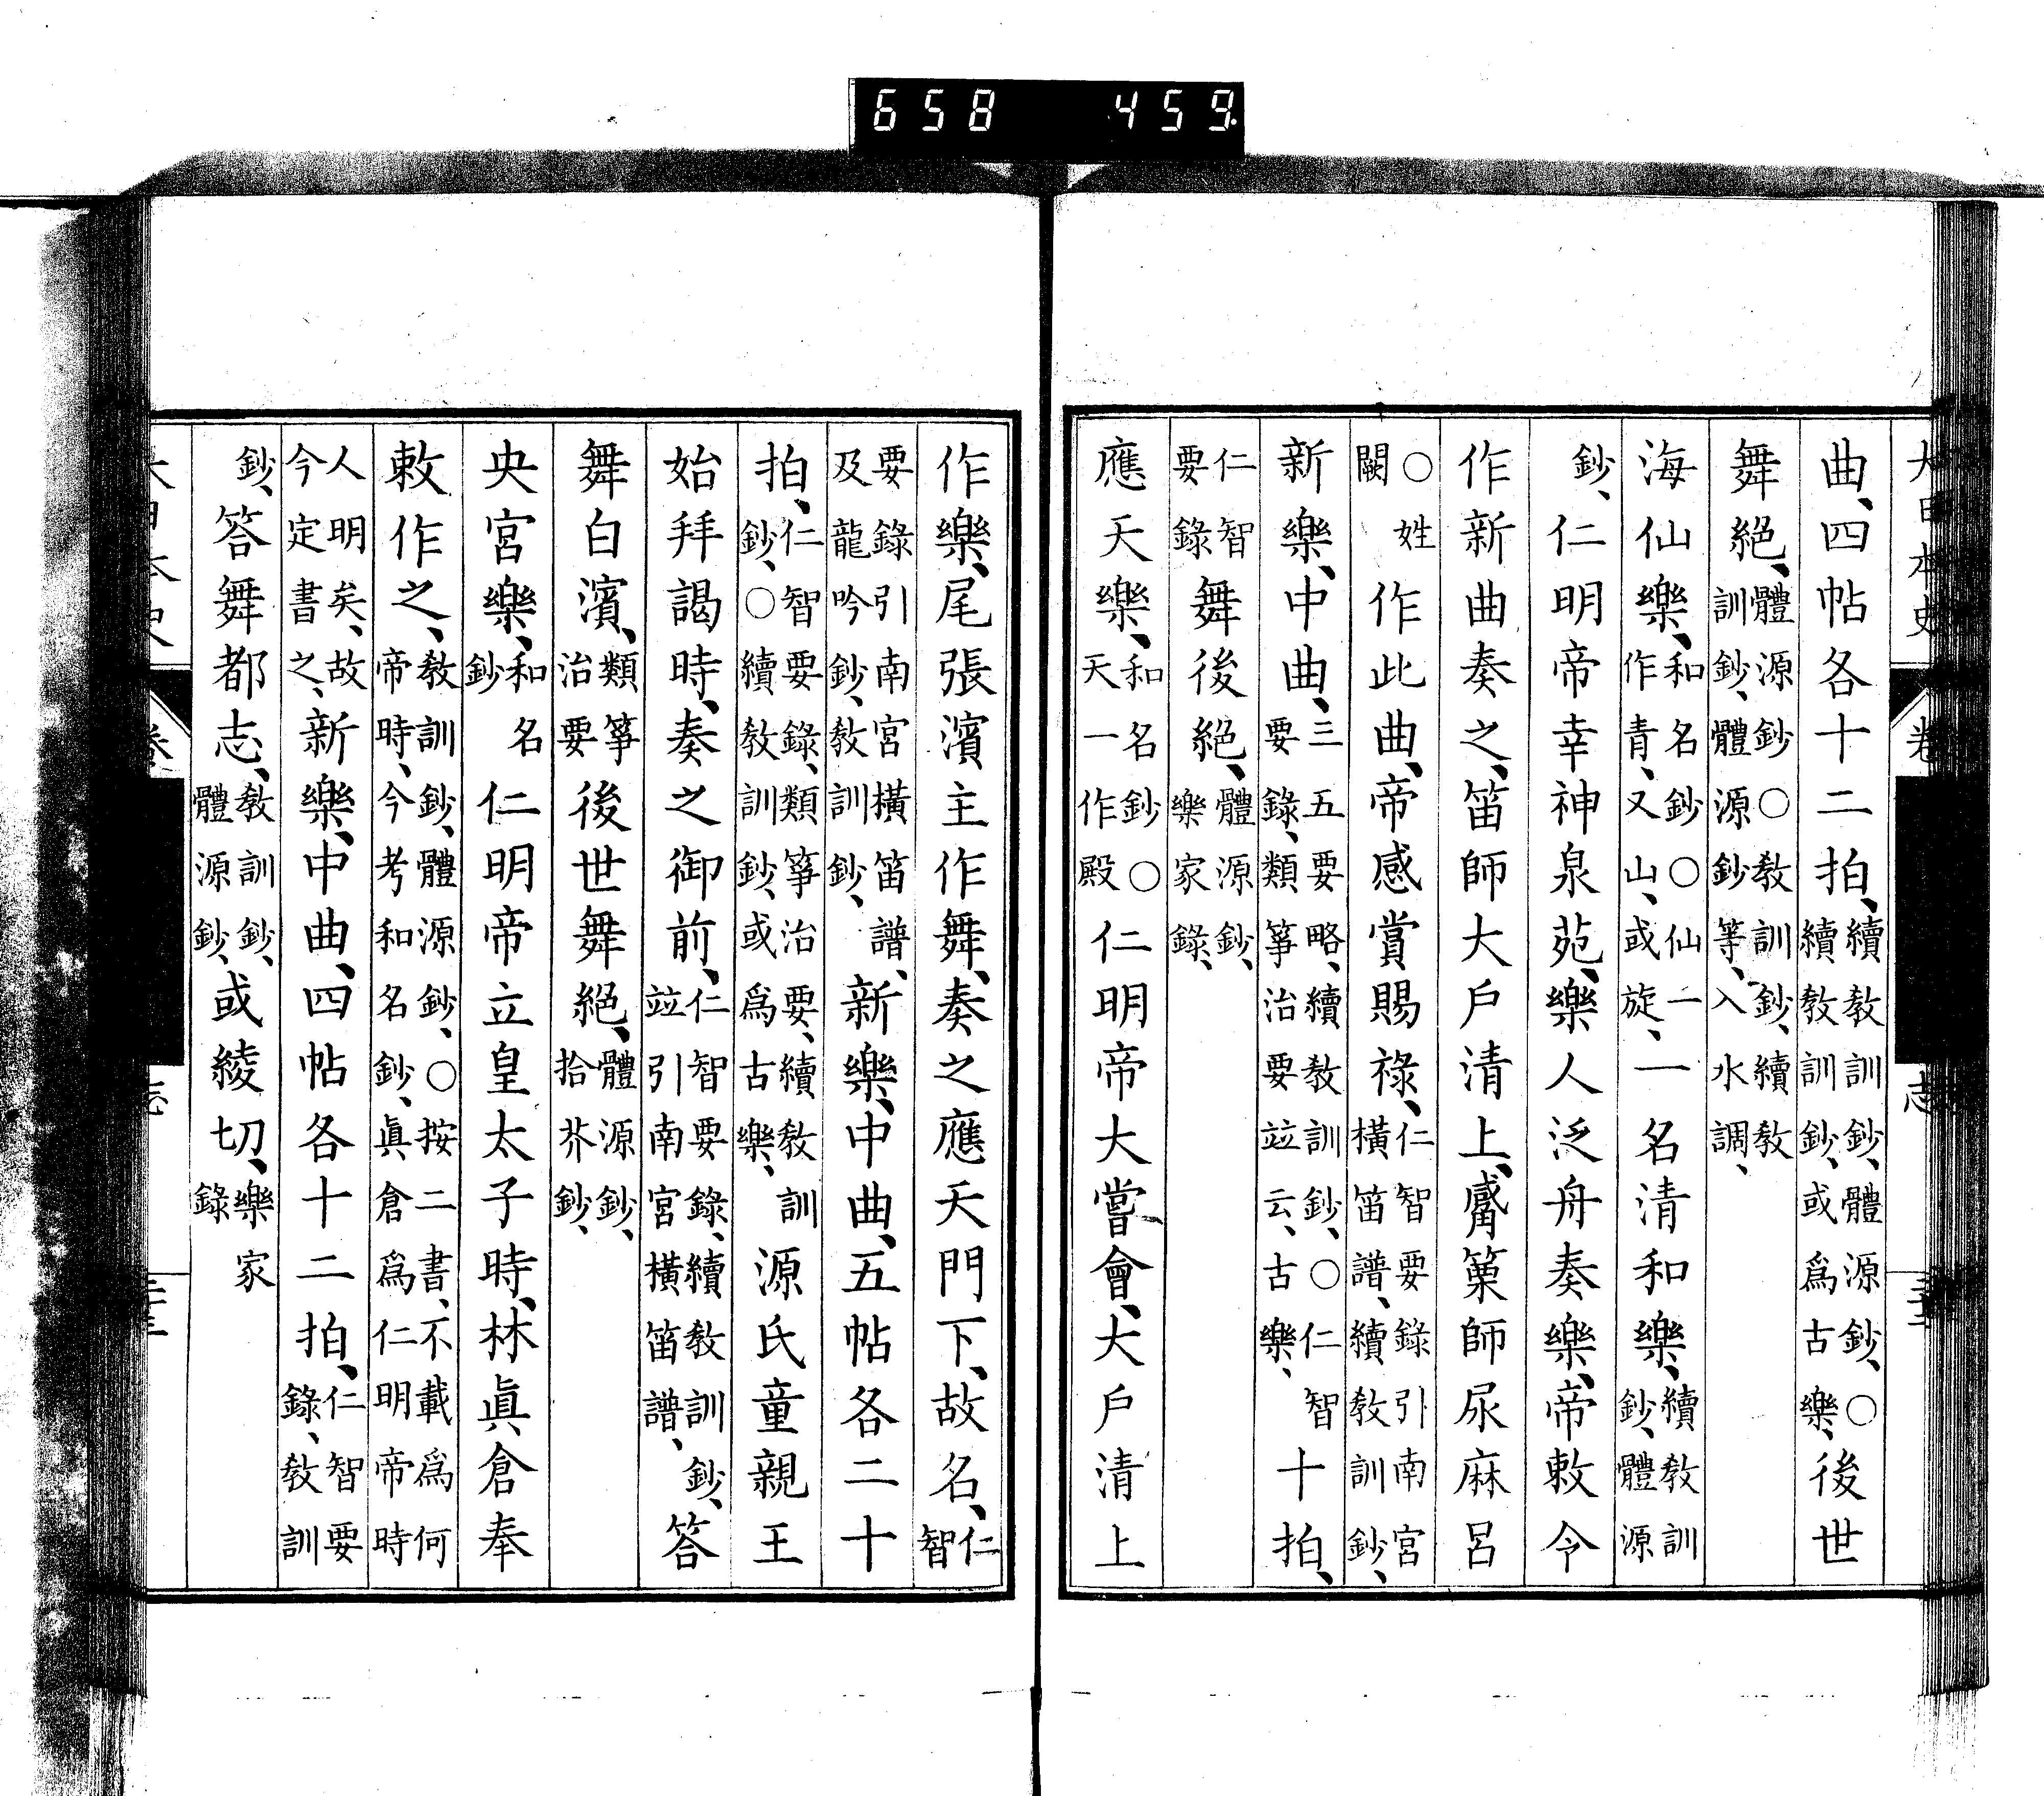 658 459
大日本史 卷 志
曲、四帖各十二拍、續敎訓鈔、體源鈔、○續敎訓鈔、或爲古樂、後世
舞絕、體源鈔○敎訓鈔、續敎訓鈔、體源鈔等、入水調、
海仙樂、和名鈔○仙一作靑、又山、或旋、一名淸和樂、續敎訓鈔、體源
鈔、仁明帝幸神泉苑、樂人泛舟奏樂、帝敕令
作新曲奏之、笛師大戶淸上、篳篥師尿麻呂
○姓闕作此曲、帝感賞賜祿、仁智要錄引南宮橫笛譜、續敎訓鈔、
新樂、中曲、三五要略、續敎訓鈔、○仁智要錄、類箏治要竝云、古樂、十拍、
仁智要錄舞後絕、體源鈔、樂家錄、
應天樂、和名鈔○天一作殿仁明帝大嘗會、大戶淸上
作樂、尾張濱主作舞、奏之應天門下、故名、仁智
要錄引南宮橫笛譜、及龍吟鈔、敎訓鈔、新樂、中曲、五帖各二十
拍、仁智要錄、類箏治要、續敎訓鈔、○續敎訓鈔、或爲古樂、源氏童親王
始拜謁時、奏之御前、仁智要錄、續敎訓鈔、竝引南宮橫笛譜、答
舞白濱、類箏治要後世舞絕、體源鈔、拾芥鈔、
央宮樂、和名鈔仁明帝立皇太子時、林眞倉奉
敕作之、敎訓鈔、體源鈔、○按二書、不載爲何帝時、今考和名鈔、眞倉爲仁明帝時
人明矣、故今定書之、新樂、中曲、四帖各十二拍、仁智要錄、敎訓
鈔、答舞都志、敎訓鈔、體源鈔、或綾切、樂家錄